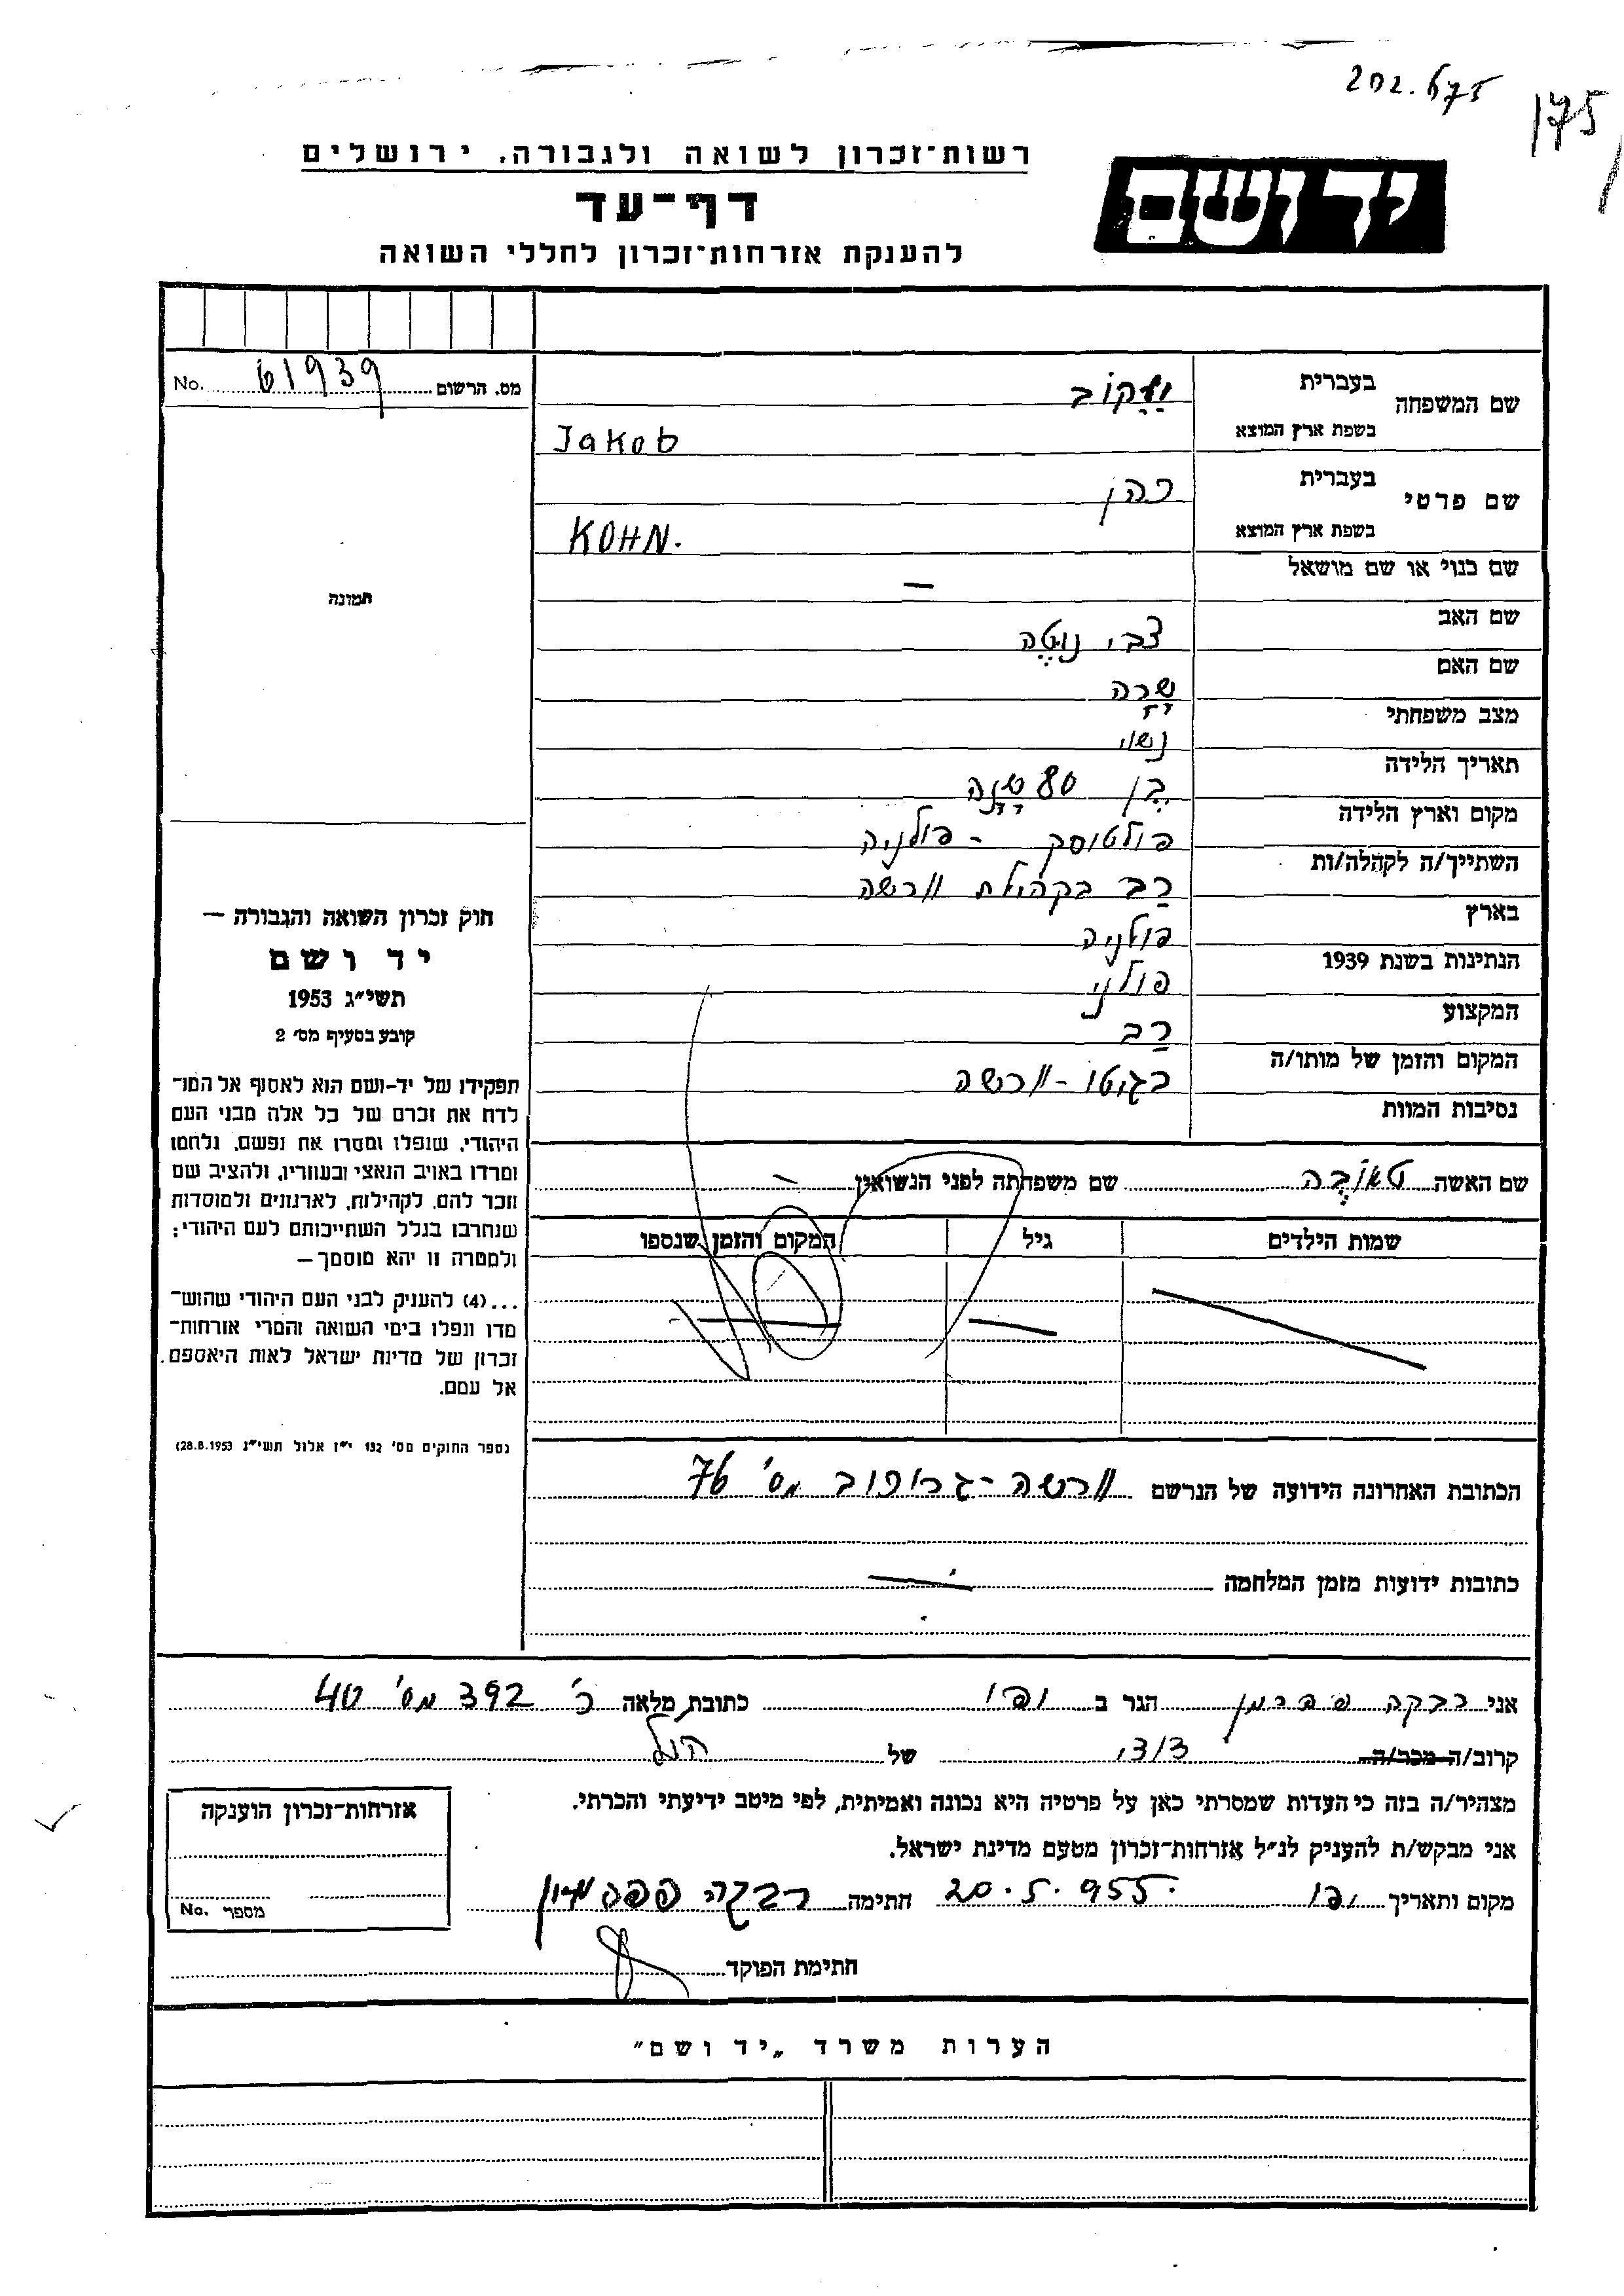 202.675
175
רשות־זכרון לשואה ולגבורה, ירושלים
יד ושם
דף־עד
להענקת אזרחות־זכרון לחללי השואה
מס. הרשום 61939 No.
שם המשפחה
בעברית יַעֲקוֹב
בשפת ארץ המוצא Jakob
שם פרטי
בעברית כהן
בשפת ארץ המוצא KOHN.
שם כנוי או שם מושאל —
שם האב צבי נוטֶה
שם האם שָרָה
מצב משפחתי נשוי
תאריך הלידה בֶן 80 שָנָה
מקום וארץ הלידה פולטוסק - פולניה
השתייך/ה לקהלה/ות רַב בקהילת וורשה
בארץ פולניה
הנתינות בשנת 1939 פולני
המקצוע רַב
המקום והזמן של מותו/ה בגיטו - וורשה
נסיבות המוות
תמונה
חוק זכרון השואה והגבורה —
יד ושם
תשי״ג 1953
קובע בסעיף מס׳ 2
תפקידו של יד-ושם הוא לאסוף אל המו־
לדת את זכרם של כל אלה מבני העם
היהודי, שנפלו ומסרו את נפשם, נלחמו
ומרדו באויב הנאצי ובעוזריו, ולהציב שם
וזכר להם, לקהילות, לארגונים ולמוסדות
שנחרבו בגלל השתייכותם לעם היהודי;
ולמטרה זו יהא מוסמך —
...(4) להעניק לבני העם היהודי שהוש־
מדו ונפלו בימי השואה והמרי אזרחות־
זכרון של מדינת ישראל לאות היאספם
אל עמם.
(ספר החוקים מס׳ 132 י״ז אלול תשי״ג 28.8.1953)
שם האשה טאובֶה שם משפחתה לפני הנשואין —
שמות הילדים גיל המקום והזמן שנספו
הכתובת האחרונה הידועה של הנרשם וורשה - גז׳יבוב מס׳ 76
כתובות ידועות מזמן המלחמה —
אני רבקה פהרמן הגר ב יפו כתובת מלאה ר׳ 392 מס׳ 40
קרוב/ה מכר/ה דודי של הנ״ל
מצהיר/ה בזה כי העדות שמסרתי כאן על פרטיה היא נכונה ואמיתית, לפי מיטב ידיעתי והכרתי.
אני מבקש/ת להעניק לנ״ל אזרחות־זכרון מטעם מדינת ישראל.
מקום ותאריך יפו 20.5.955 חתימה רבקה
חתימת הפוקד
אזרחות־זכרון הוענקה
מספר No.
הערות משרד „יד ושם״